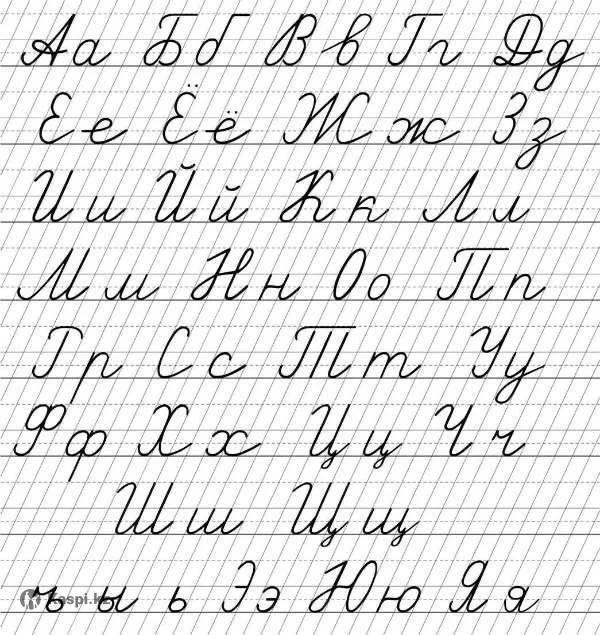 Аа Бб Вв Гг Дд
Ее Ёё Жж Зз
Ии Йй Кк Лл
Мм Нн Оо Пп
Рр Сс Тт Уу
Фф Хх Цц Чч
Шш Щщ
ъ ы ь Ээ Юю Яя
Kaspi.kz